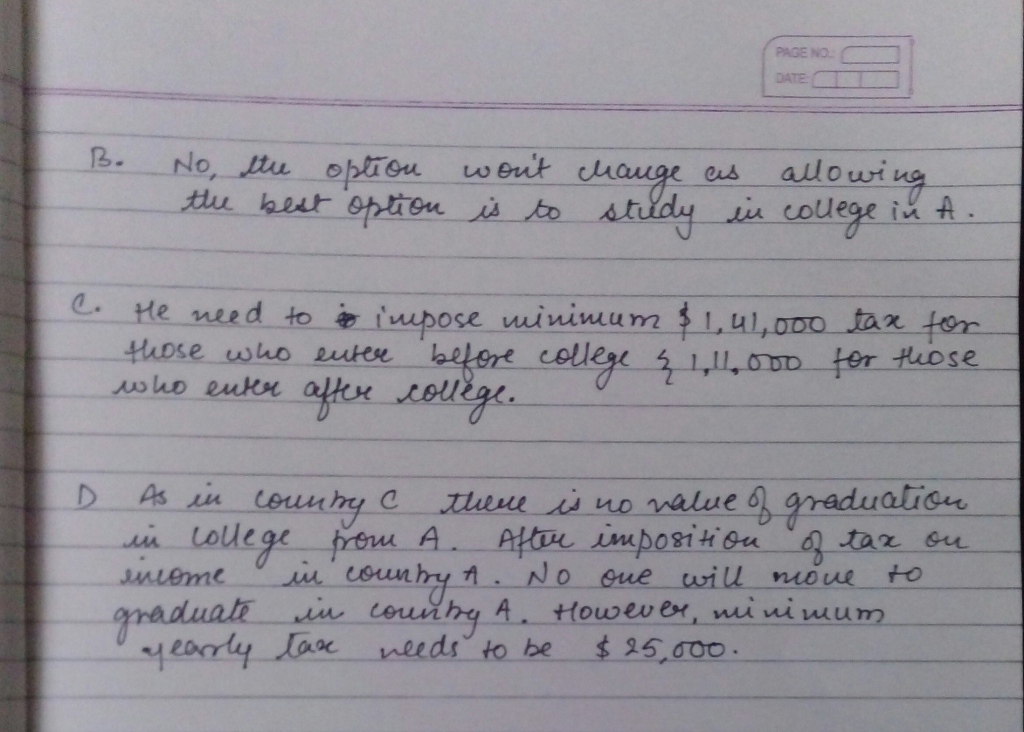 PAGE NO.:
DATE:
B. No, the option won't change as allowing
the best option is to study in college in A.
C. He need to impose minimum $ 1,41,000 tax for
those who enter before college & 1,11,000 for those
who enter after college.
D As in country C there is no value of graduation
in college from A. After imposition of tax on
income in country A. No one will move to
graduate in country A. However, minimum
yearly tax needs to be $ 25,000.